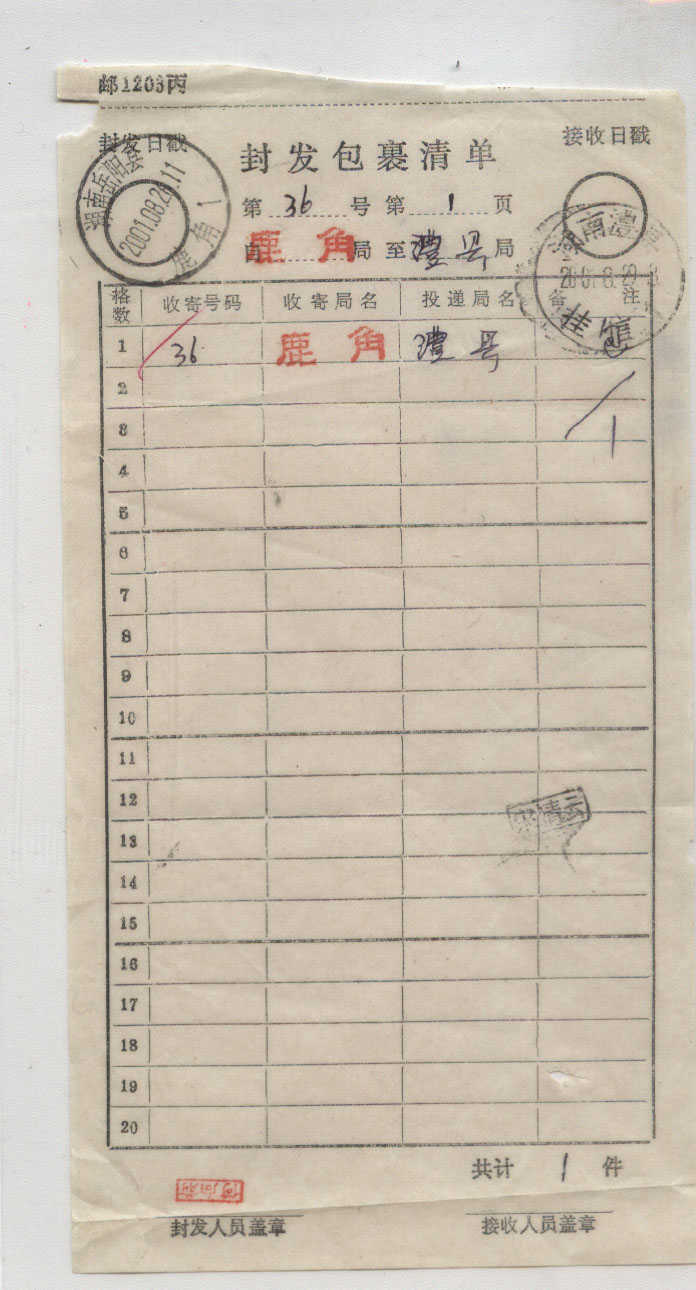 邮1203丙
封发日戳
接收日戳
封发包裹清单
湖南岳阳县
2001.08.26.11
鹿角1
第 36 号 第 1 页
自 鹿角 局 至 澧县 局
湖南澧
格数 收寄号码 收寄局名 投递局名 备注
1 36 鹿角 澧县
2
3 1
4
5
6
7
8
9
10
11
12
13
14
15
16
17
18
19
20
共计 1 件
封发人员盖章
接收人员盖章